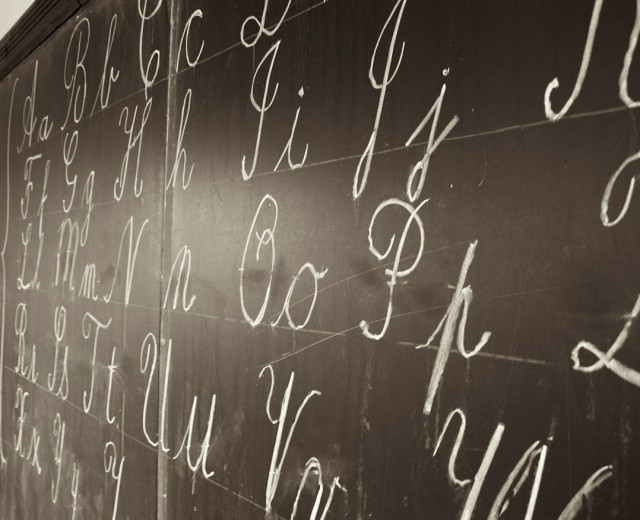 A a B b C c
F f G g H h I i J j
L l M m N n O o P p
R r S s T t U u V v
X x Y y